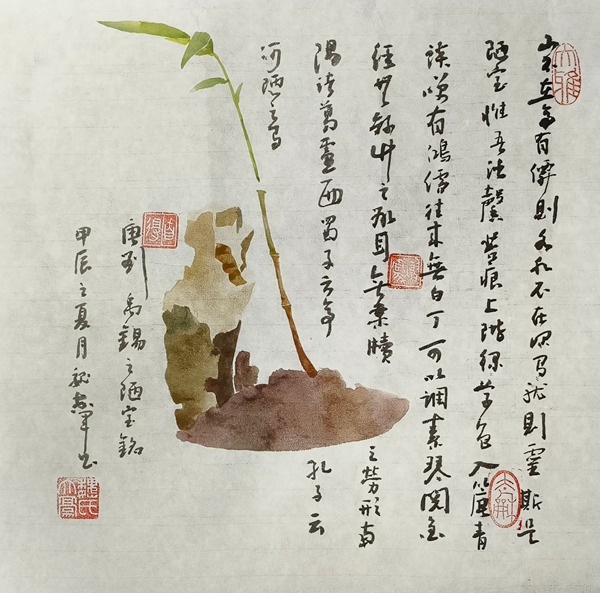 山不在高有僊則名水不在深有龍則靈斯是
陋室惟吾德馨苔痕上階綠草色入簾青
談笑有鴻儒往來無白丁可以調素琴閱金
經無絲竹之亂耳無案牘之勞形南
陽諸葛廬西蜀子雲亭孔子云
何陋之有
唐劉禹錫之陋室銘
甲辰之夏月書